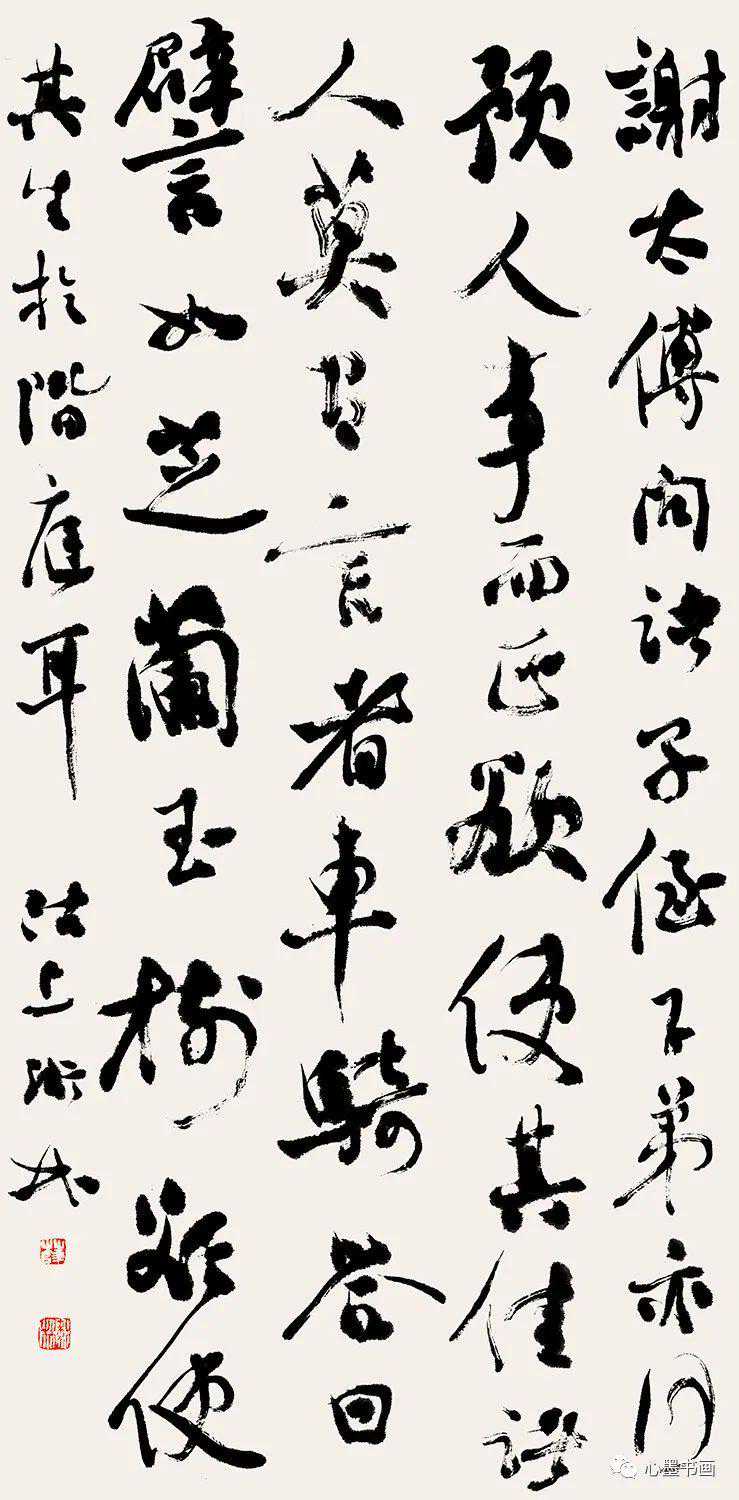 謝太傅問諸子侄子弟亦何
預人事而正欲使其佳諸
人莫有言者車騎答曰
譬如芝蘭玉樹欲使
其生於階庭耳
沽上
心墨书画